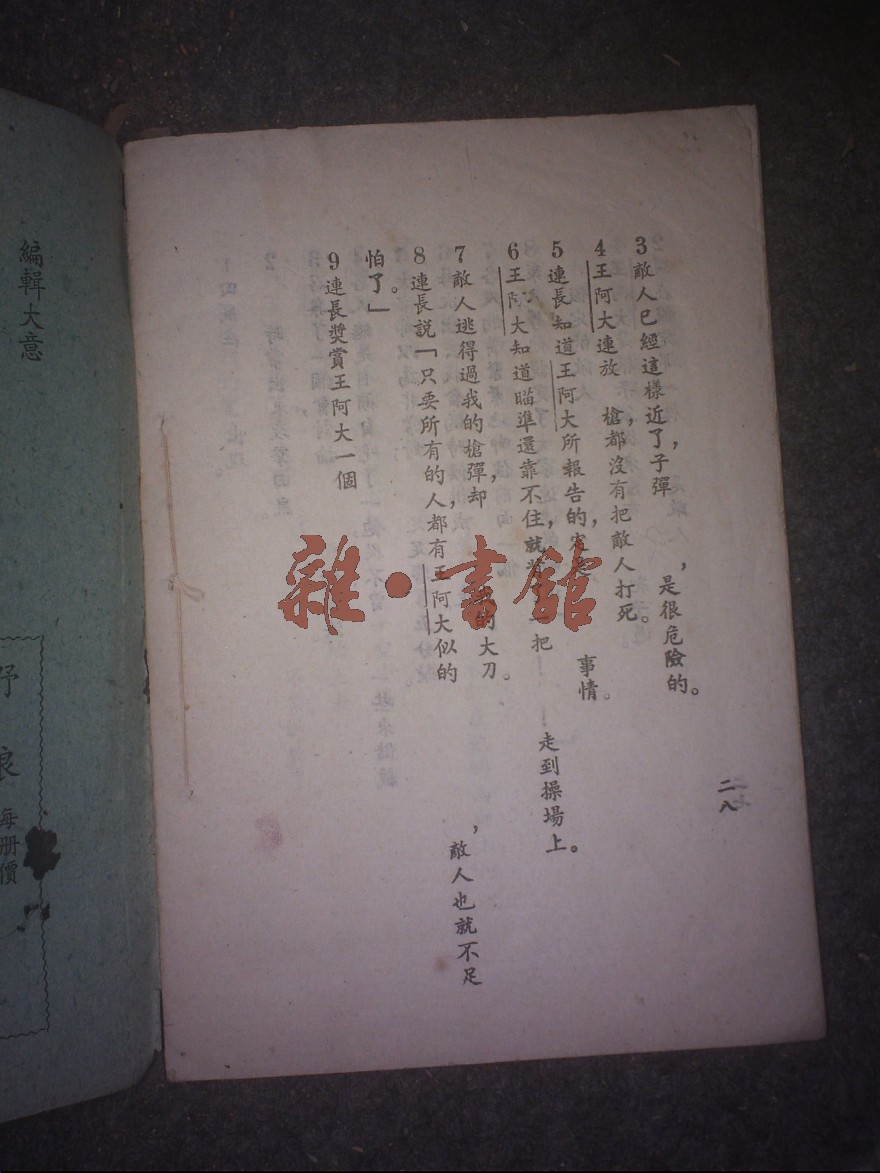 二八
3 敵人已經這樣近了，子彈　　，是很危險的。
4 王阿大連放　槍，都沒有把敵人打死。
5 連長知道王阿大所報告的，　　事情。
6 王阿大知道瞄準還靠不住，就　一把　　走到操場上。
7 敵人逃得過我的槍彈，却　　的大刀。
8 連長説「只要所有的人，都有王阿大似的　　，敵人也就不足
怕了。」
9 連長獎賞王阿大一個
雜·書館
編輯大意
野
狼
每册價